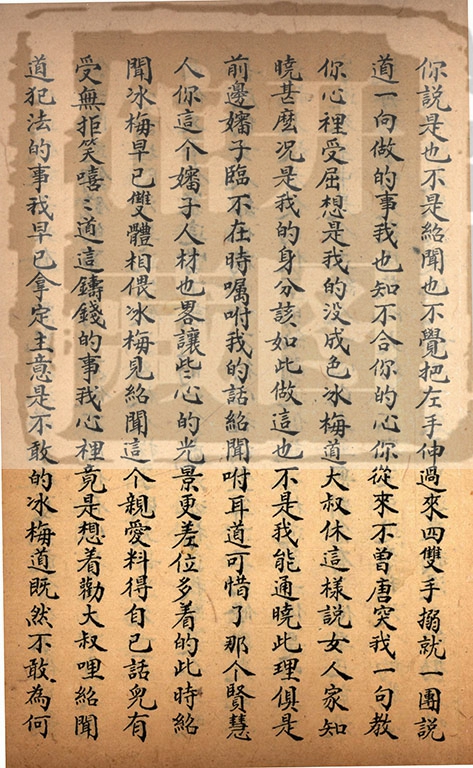 你説是也不是紹聞也不覺把左手伸過來四雙手搦就一團説
道一向做的事我也知不合你的心你從來不曾唐突我一句教
你心裡受屈想是我的没成色冰梅道大叔休這樣説女人家知
曉甚麽况是我的身分該如此做這也不是我能通曉此理俱是
前邊嬸子臨不在時囑咐我的話紹聞咐耳道可惜了那个賢慧
人你這个嬸子人材也畧讓些心的光景更差位多着的此時紹
聞冰梅早已雙體相偎冰梅見紹聞這个親愛料得自已話兒有
受無拒笑嘻〻道這鑄錢的事我心裡竟是想着勸大叔哩紹聞
道犯法的事我早已拿定主意是不敢的冰梅道既然不敢為何